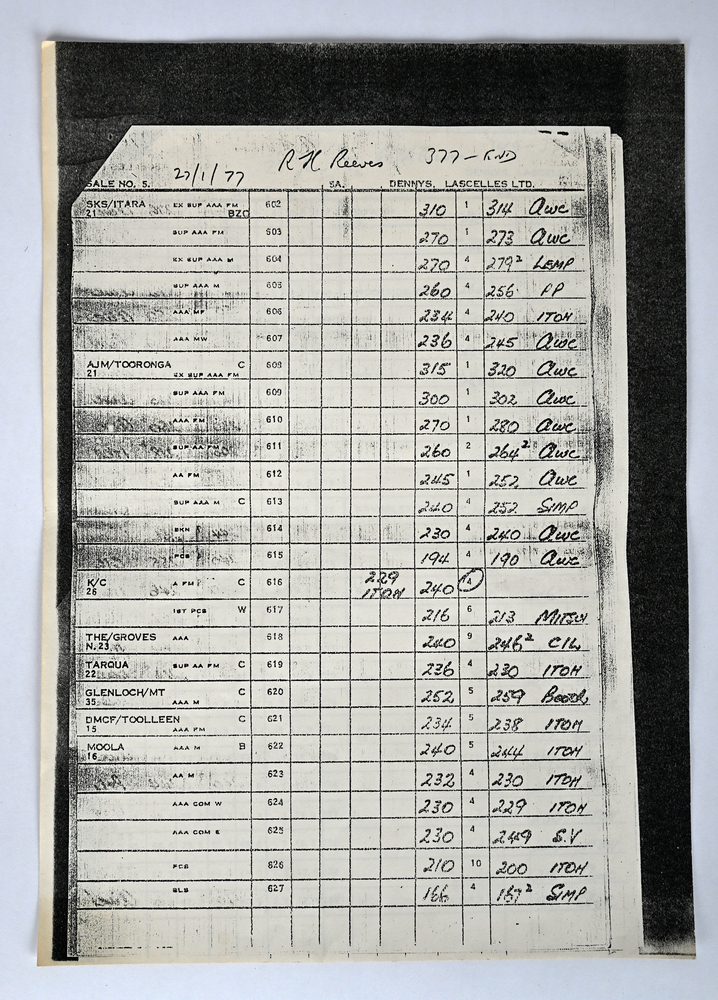 R H Reeves 377 - RND
27/1/77
SALE NO. 5. SA. DENNYS, LASCELLES LTD.
SKS/ITARA EX SUP AAA FM 602 310 1 314 AWC
21 BZC
SUP AAA FM 603 270 1 273 AWC
EX SUP AAA M 604 270 4 279² LEMP
SUP AAA M 605 260 4 256 PP
AAA MF 606 234 4 240 ITOH
AAA MW 607 236 4 245 AWC
AJM/TOORONGA C 608 315 1 320 AWC
21 EX SUP AAA FM
SUP AAA FM 609 300 1 302 AWC
AAA FM 610 270 1 280 AWC
SUP AA FM 611 260 2 264² AWC
AA FM 612 245 1 252 AWC
SUP AAA M C 613 240 4 252 SIMP
BKN 614 230 4 240 AWC
PCS 615 194 4 190 AWC
K/C A FM C 616 229 240
26 ITOH
1ST PCS W 617 216 6 213 MITSUI
THE/GROVES AAA 618 240 9 246² CIL
N. 23
TARQUA SUP AA FM C 619 236 4 230 ITOH
22
GLENLOCH/MT C 620 252 5 259 Booth
35 AAA M
DMCF/TOOLLEEN C 621 234 5 238 ITOH
15 AAA FM
MOOLA AAA M B 622 240 5 244 ITOH
16
AA M 623 232 4 230 ITOH
AAA COM W 624 230 4 229 ITOH
AAA COM E 625 230 4 249 S.V
PCS 626 210 10 200 ITOH
BLS 627 166 4 167² SIMP